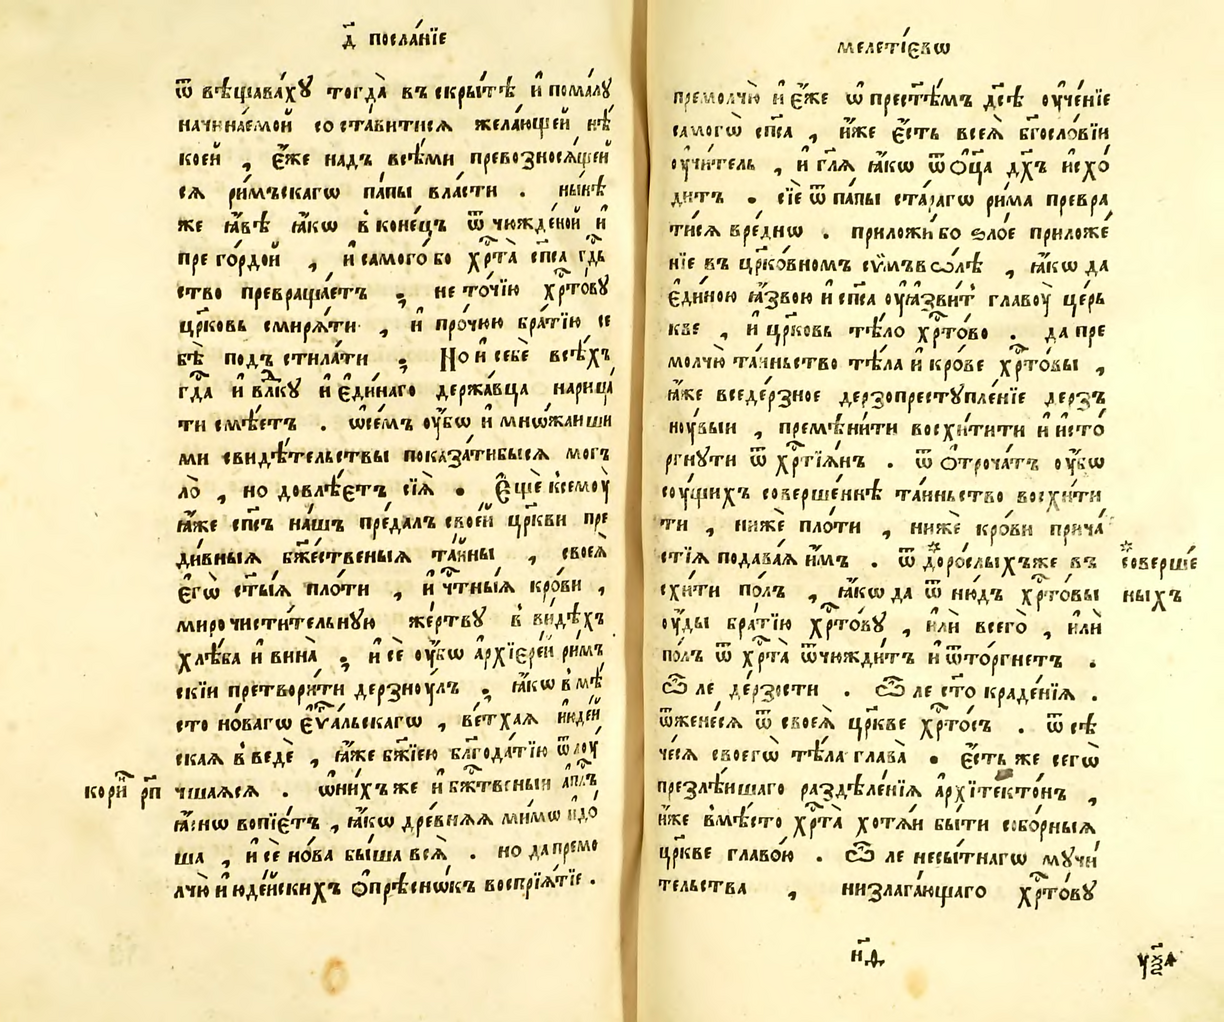 д҃ посла́нїе
ѿ вѣщава́хꙋ тогда̀ въ скры́тѣ и҆ пома́лꙋ
начина́емой соста́витися жела́ющей нѣ́
коей , є҆́же надъ всѣ́ми превозносѧ́щей
сѧ ри́мъскагѡ па́пы вла́сти . ны́нѣ
же ꙗ҆́вѣ ꙗ҆́кѡ в̾коне́цъ ѿ чюжде́ной и҆
пре го́рдой , и҆ самого́ бо хрⷭ҇та̀ сп҃са гдⷭ҇ь
ство превраща́етъ ; не то́чїю хрⷭ҇то́вꙋ
цр҃ковь смирѧ́ти , и҆ про́чюю бра́тїю се
бѣ̀ подъ стила́ти ; Но и҆ себѐ всѣ́хъ
гдⷭ҇а и҆ влⷣкꙋ и҆ є҆ди́наго держа́вца нарица́
ти смѣ́етъ . ѡ҆се́мъ ᲂу҆́бѡ и҆ мнѡ́жаиши
ми свидѣ́тельствы показа́тибысѧ могъ
ло̀ , но довлѣ́етъ сїѧ̀ . Є҆щѐ ксемꙋ̀
ꙗ҆́же сп҃съ на́шъ преда́лъ свое́й цр҃кви пре
ди́вныѧ бж҃е́ственыѧ та́йны , своеѧ̀
є҆гѡ̀ ст҃ы́ѧ пло́ти , и҆ чⷭ҇тны́ѧ кро́ви ,
миро чисти́тельнꙋю же́ртвꙋ в̾ ви́дѣхъ
хлѣ́ба и҆ вина̀ ; и҆ сѐ ᲂу҆́бѡ а҆рхїєре́й ри́мъ
скїи претвори́ти дерзноу́лъ ; ꙗ҆́кѡ в̾мѣ́
сто но́вагѡ є҆ѵⷢ҇а́льскагѡ , ве́тхаѧ і҆ꙋде́й
скаѧ в̾ведѐ , ꙗ҆́же бж҃їею блг҃ода́тїю ѿлоу
кори́нⷴ҇ рп҃ чшаѧсѧ . ѡ҆ни́хъ же и҆ бжⷭ҇твеныи а҆пⷭ҇лъ
ꙗ҆́сно вопїе́тъ , ꙗ҆́кѡ дре́внѧѧ ми́мѡ идо́
ша , и҆ сѐ но́ва бы́ша всѧ̀ . но да премо
лчю̀ и҆ юде́йскихъ ѻ҆прѣ́снѡкъ воспрїѧ́тїе .
мелеті́евѡ
премолчю̀ и҆ є҆́же ѡ҆ прест҃ѣ́мъ дс҃ѣ ᲂу҆че́нїе
самогѡ̀ сп҃са , и҆́же є҆́сть всеѧ̀ бг҃осло́вїи
ᲂу҆чи́тель , и҆ гл҃ѧ ꙗ҆́кѡ ѿ ѻ҆ц҃а дх҃ъ исхо́
дитъ . сїѐ ѿ па́пы ста́рагѡ ри́ма превра
ти́сѧ вре́днѡ . приложи́ бо ѕло́е приложе́
нїе въ цр҃ко́вномъ сѵ́мъвѡлѣ , ꙗ҆́кѡ да
є҆ди́ною ꙗ҆́звою и҆ сп҃са ᲂу҆ꙗ҆зви́тъ главоу̀ це́рь
кве , и҆ цр҃ковь тѣ́ло хрⷭ҇то́во . да пре
молчю̀ та́иньство тѣ́ла и҆ кро́ве хрⷭ҇то́вы ,
ꙗ҆́же вседе́рзное дерзопрестꙋпле́нїе дерз̾
ноу́выи , премѣни́ти восхи́тити и҆ исто́
ргнꙋти ѿ хрⷭ҇тїѧ́нъ . ѿ ѻ҆троча́тъ ᲂу҆́бѡ
соу́щихъ соверше́ннѣ та́иньство восхи́ти
ти , нижѐ пло́ти , нижѐ кро́ви прича́
стїѧ подава́ѧ и҆́мъ . ѿ * доро́слыхъже въ * соверше́
схи́ти по́лъ , ꙗ҆́кѡ да ѿ ню́дъ хрⷭ҇то́вы ныхъ
ᲂу҆́ды бра́тїю хрⷭ҇то́вꙋ , и҆лѝ всего̀ , и҆лѝ
по́лъ ѿ хрⷭ҇та̀ ѿчюжди́тъ и҆ ѿто́ргнетъ .
Ѽ ле де́рзости . Ѽ ле ст҃о краде́нїѧ .
ѿжене́сѧ ѿ своеѧ̀ цр҃кве хрⷭ҇то́съ . ѿ сѣ
че́сѧ своегѡ̀ тѣ́ла глава̀ . є҆́сть же сегѡ̀
презлѣ́ишаго раздѣле́нїѧ а҆рхїте́ктѡнъ ,
и҆́же в̾мѣ́сто хрⷭ҇та̀ хотѧ́и бы́ти собо́рныѧ
цр҃кве главо́ю . Ѽ ле несы́тнагѡ мꙋчи́
тельства , низлага́ющаго хрⷭ҇то́вꙋ